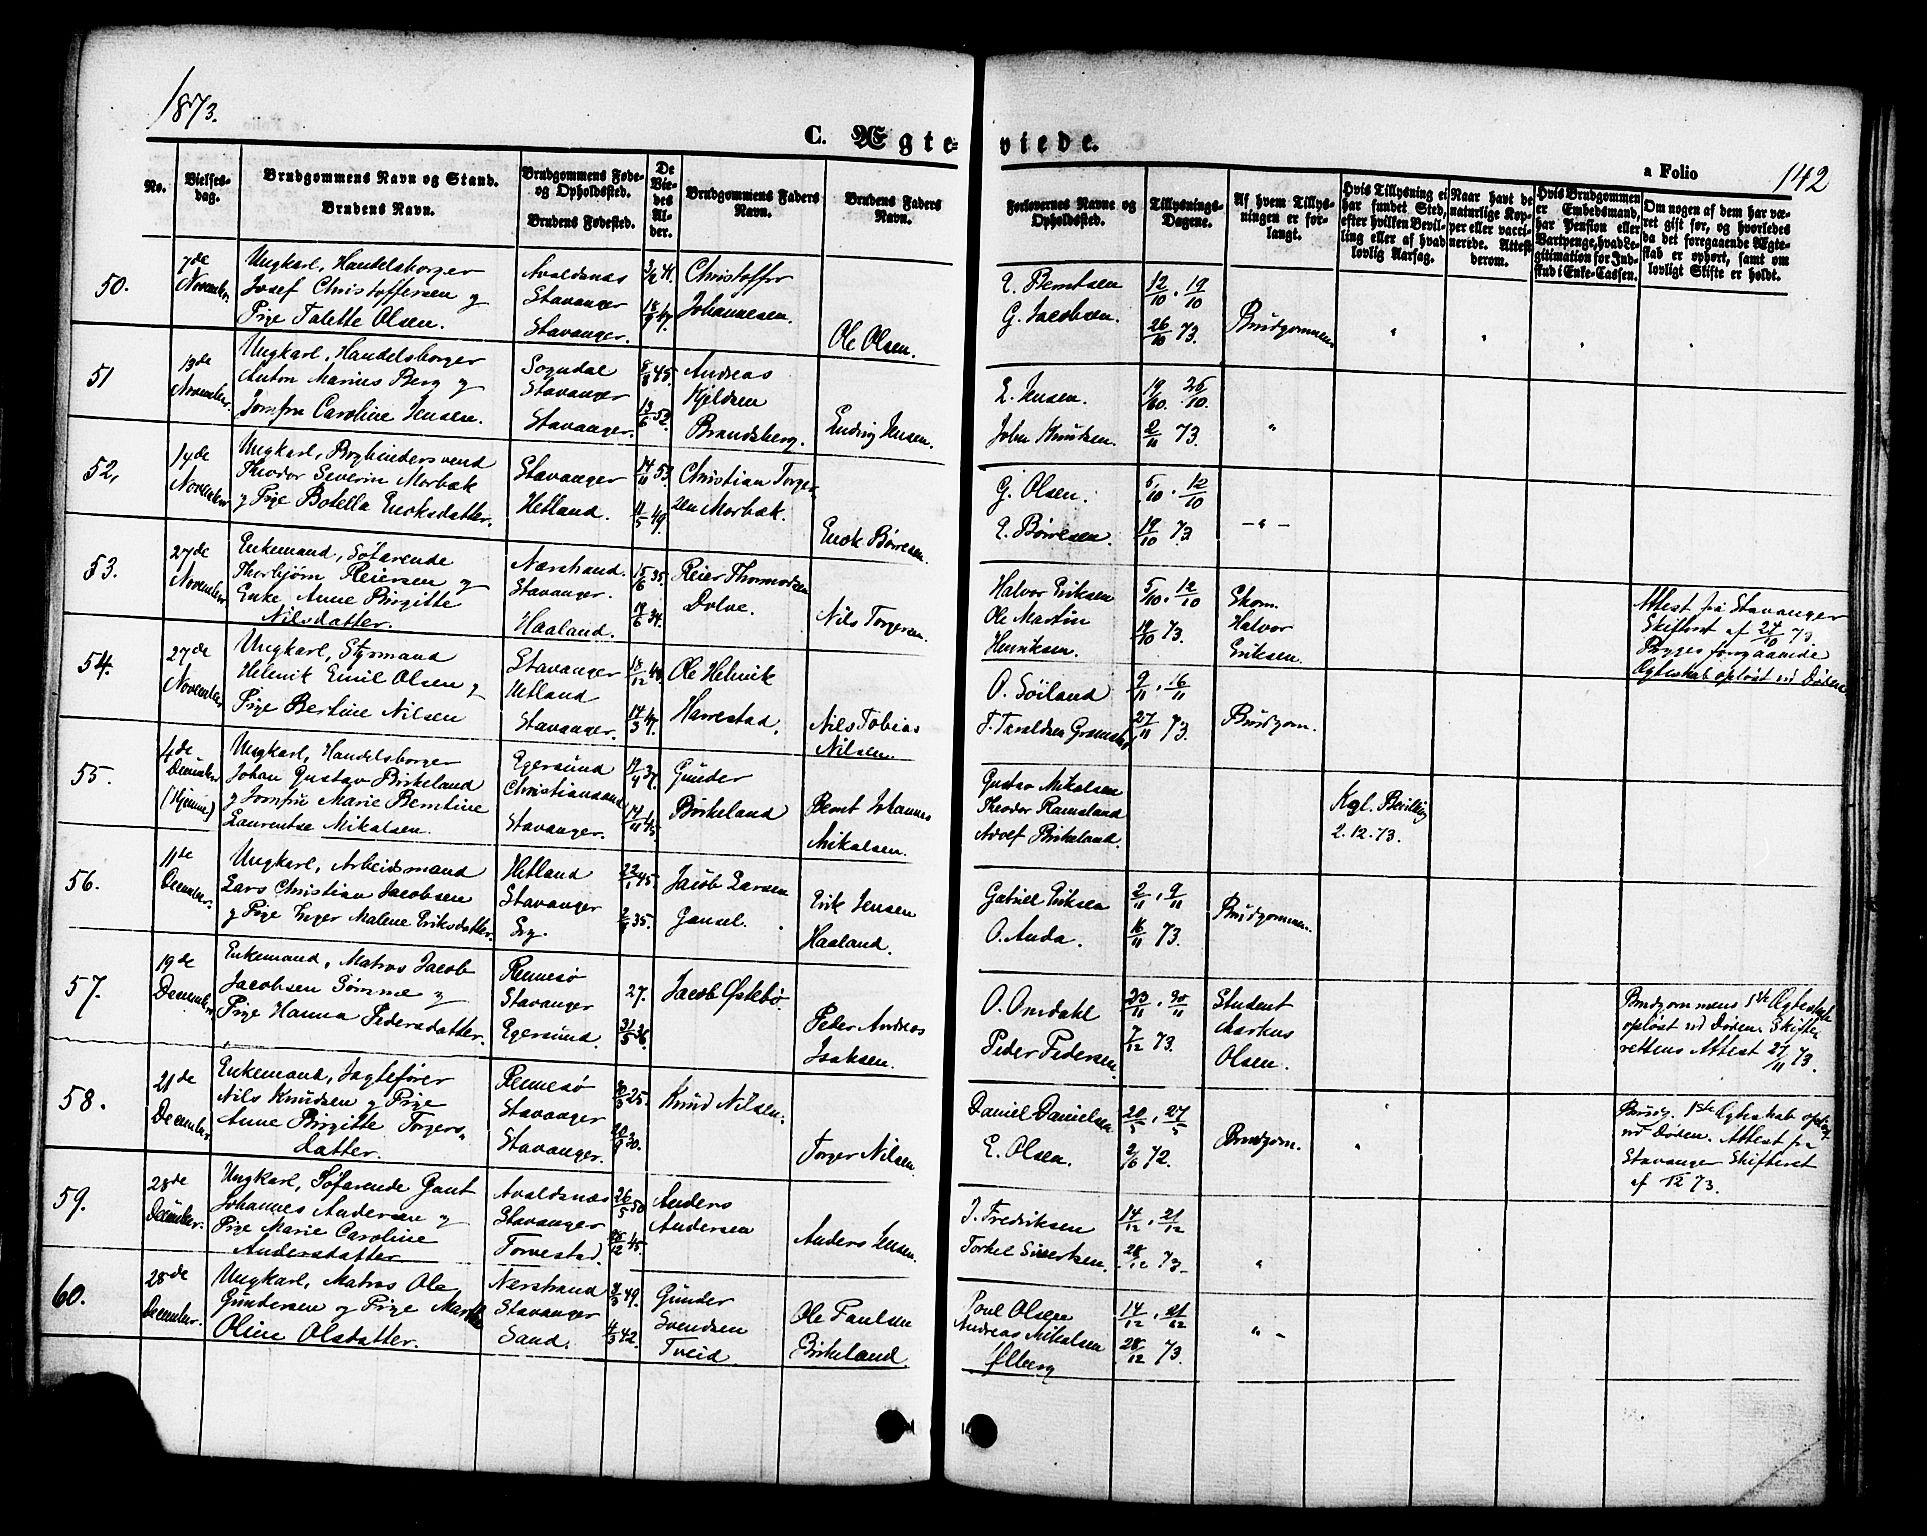 1873.
C. Ægteviede.
a Folio 142
No.
Vielsesdag.
Brudgommens Navn og Stand.
Brudens Navn.
Brudgommens Føde- og Opholdssted.
Brudens Fødested.
De Viedes Alder.
Brudgommens Faders Navn.
Brudens Faders Navn.
Forlovernes Navne og Opholdssted.
Tillysnings-Dagene.
Af hvem Tillysningen er forlangt.
Hvis Tillysning ei har fundet Sted, efter hvilken Bevilling eller af hvad lovlig Aarsag.
Naar havt de naturlige Kopper eller vaccinerede. Attest derom.
Hvis Brudgommen er Embedsmand, har Pension eller Vartpenge, hvad Legitimation for Indskud i Enke-Cassen.
Om nogen af dem har været gift før, og hvorledes da det foregaaende Ægteskab er ophørt, samt om lovligt Skifte er holdt.
50.
7de November
Ungkarl, Handelsborger
Josef Christoffersen og
Pige Talette Olsen.
Avaldsnæs
Stavanger
Stavanger.
18/9 47.
Christoffer
Johannesen.
Ole Olsen.
E. Berntsen
G. Jacobsen.
12/10, 19/10
26/10 73.
Brudgommen
51
13de November.
Ungkarl, Handelsborger
Anton Marius Berg og
Jomfru Caroline Jensen.
Sogndal
Stavanger
Stavanger.
8/8 45.
13/6 52.
Andreas
Kjeldsen
Brandsberg.
Ludvig Jensen.
L. Jensen.
John Knutsen.
19/10. 26/10.
2/11 73.
"
52,
14de November
Ungkarl, Bogbindersvend
Theodor Severin Morbak
og Pige Botella Enoksdatter.
Stavanger
Hetland.
14/11 53.
11/5 49.
Christian Torger-
sen Morbak.
Enok Børresen.
G. Olsen.
E. Børresen.
5/10. 12/10
19/10 73
- " -
53.
27de November
Enkemand, Søfarende
Thorbjørn Reiersen og
Enke Anne Birgitte
Nilsdatter.
Nærstrand.
Stavanger.
Haaland.
15/6 35.
Reier Thormodsen
Dolve.
Nils Torgersen.
Halvor Eriksen
Ole Martin
Henriksen.
5/10. 12/10
19/10 73.
Skom.
Halvor
Eriksen.
Attest fra Stavanger
Skifteret af 24/10 73.
Begges foregaaende
Ægteskab opløst ved Døden
54.
27de November
Ungkarl, Styrmand
Helmik Emil Olsen og
Pige Bertine Nilsen
Stavanger
Hetland
Stavanger.
14/3 47.
Ole Helmik
Harrestad.
Nils Tobias
Nilsen.
O. Söiland
T. Taraldsen Gramstad
9/11, 16/11
27/11 73.
Brudgom.
55.
4de December
(Hjemme)
Ungkarl, Handelsborger
Johan Gustav Birkeland
og Jomfru Marie Berntine
Laurentse Mikalsen.
Egersund
Christiansand
Stavanger.
Gunder
Birkeland
Bernt Johannes
Mikalsen.
Gustav Mikalsen
Theodor Ramsland
Adolf Birkeland.
Kgl. Bevilling
2.12.73.
56.
11de December.
Ungkarl, Arbeidsmand
Lars Christian Jacobsen
og Pige Inger Malene Eriksdatter.
Hetland
Stavanger
22/1 45.
Jacob Larsen
Gausel.
Erik Jensen
Haaland.
Gabriel Eriksen
O. Anda.
2/11, 9/11
16/11 73.
Brudgommen.
57.
19de December
Enkemand, Matros Jacob
Jacobsen Sømme og
Pige Hanna Pedersdatter.
Rennesø
Stavanger
Egersund.
27.
31/5 36.
Jacob Østebø.
Peder Andreas
Isaksen.
O. Omdahl
Peder Pedersen.
23/11, 30/11
7/12 73.
Student
Markus
Olsen.
Brudgommens 1ste Ægteskab
opløst ved Døden. Skifte-
rettens Attest 27/11 73.
58.
21de December
Enkemand, Jagtefører
Nils Knudsen og Pige
Anne Birgitte Torgers-
datter.
Rennesø
Stavanger
Stavanger.
20/9 30.
Knud Nilsen.
Torger Nilsen.
Daniel Danielsen
E. Olsen.
20/5, 27/5
Brudgom.
Brudg. 1ste Ægteskab opløst
ved Døden. Attest fra
Stavanger Skifteret
59.
28de December.
Ungkarl, Søfarende Gaut
Johannes Andersen og
Pige Marie Caroline
Andersdatter
Avaldsnæs
Stavanger
Torvestad
26/5 50
Anders
Andersen
Anders Jensen.
J. Fredriksen
Torkel Sivertsen.
14/12, 21/12
28/12 73.
"
60.
28de December.
Ungkarl, Matros Ole
Gundersen og Pige Martha
Oline Olsdatter.
Nærstrand
Stavanger
Sand.
4/3 42.
Gunder
Svendsen
Tveid.
Ole Paulsen
Birkeland.
Poul Olsen
Andreas Mikalsen
Ølberg
14/12, 21/12
28/12 73.
" -